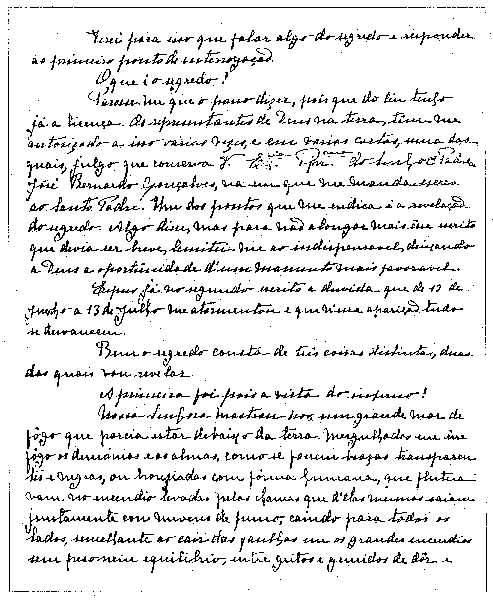 Terei para isso que falar algo do segredo e responder
ao primeiro ponto de interrogação.
O que é o segredo?
Parece-me que o posso dizer, pois que do Céu tenho
já a licença. Os representantes de Deus na terra, tem-me
autorizado a isso várias vezes, e em várias cartas, uma das
quais, julgo que conserva V. do Senhor Padre
José Bernardo Gonçalves, na em que me manda escrever
ao Santo Padre. Um dos pontos que me indica é a revelação
do segredo. Algo disse, mas para não alongar mais esse escrito
que devia ser breve, limitei-me ao indispensável, deixando
a Deus a oportunidade d'um momento mais favoravel.
Expus já no segundo escrito a duvida que de 13 de
junho a 13 de julho me atormentou e que n'essa aparição tudo
se desvaneceu.
Bem o segredo consta de tres coisas distintas, duas
das quais vou revelar.
A primeira foi pois a vista do inferno!
Nossa Senhora mostrou-nos um grande mar de
fôgo que parecia estar debaixo da terra. Mergulhados em êsse
fôgo os demónios e as almas, como se fossem brasas transparen-
tes e negras, ou bronziadas com fórma humana, que flutua-
vam no incendio levadas pelas chamas que d'elas mesmas saiam
juntamente com nuvens de fumo, caindo para todos os
lados, semelhante ao cair das faulhas em os grandes incendios
sem peso nem equilibrio, entre gritos e gemidos de dôr e